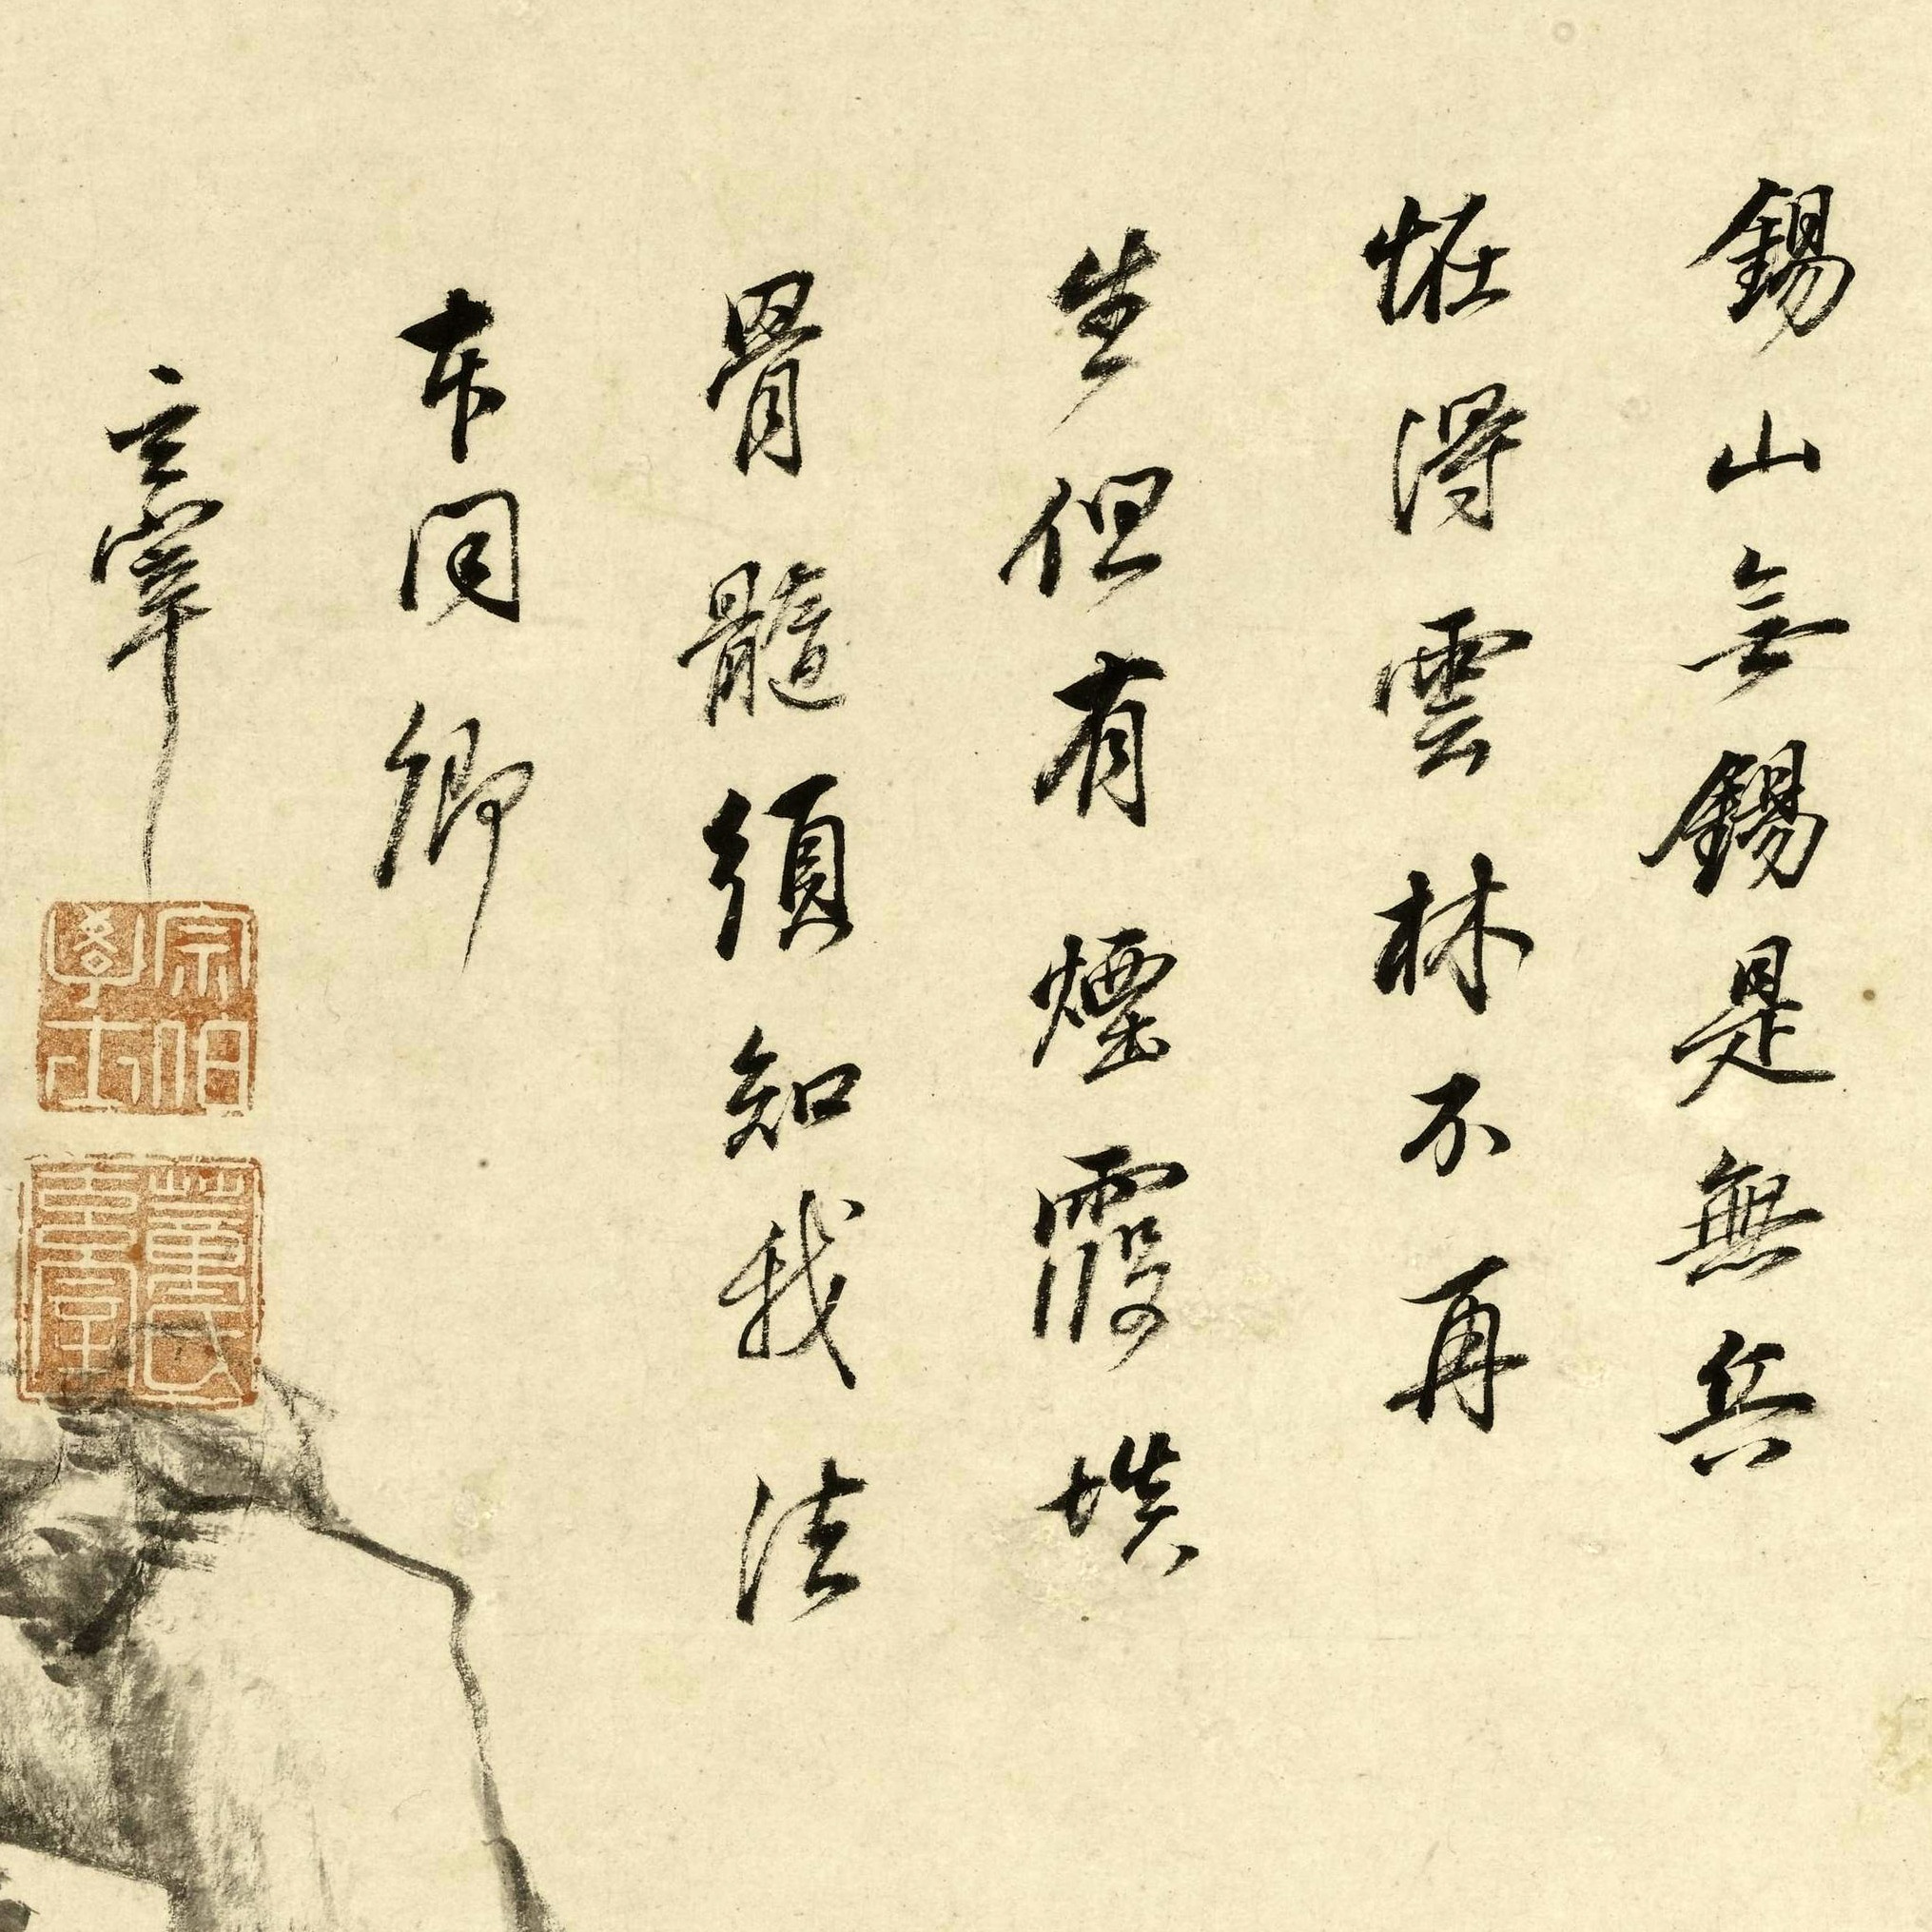 錫山無錫是無兵
恠得雲林不再
生但有煙霞填
骨髓須知我法
本同卿
玄宰
宗伯學士
董氏玄宰